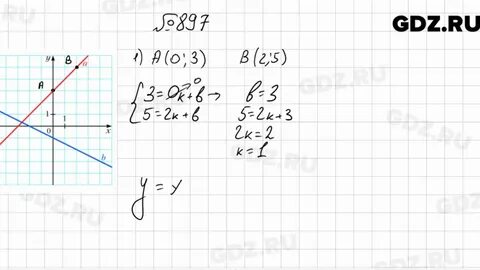 №897
GDZ.RU
1) A(0;3) B(2;5)
3=0k+b → b=3
5=2k+b 5=2k+3
2k=2
k=1
y=x
y
B
a
A
1
0 1 x
b
GDZ.RU
GDZ.RU
GDZ.RU